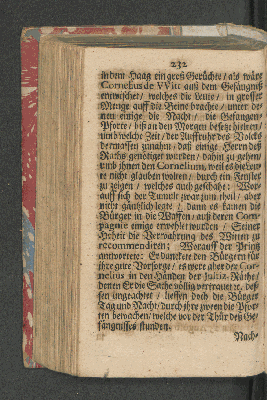 232
in dem Haag ein groß Gerüchte / als wäre
Cornelius de VVitt aus dem Gefängnuß
entwischet / welches die Leute / in grosser
Menge auff die Beine brachte / unter de-
nen einige die Nacht / die Gefangen-
Pforte / biß an den Morgen besetzt hielten /
umb welche Zeit / der Auffruhr des Volcks
dermassen zunahm / daß einige Herrn des
Raths genötiget wurden / dahin zu gehen /
und ihnen den Cornelium, weil es die Leu-
te nicht glauben wolten / durch ein Fenster
zu zeigen / welches auch geschahe: Wor-
auff sich der Tumult zwar zum theil / aber
nicht gäntzlich legte / dann es kamen die
Bürger in die Waffen / auß deren Com-
pagnie einige erwehlet wurden / Seiner
Hoheit die Verwahrung des Witten zu
recommendiren: Worauff der Printz
antwortete: Er danckete den Bürgern für
ihre gute Vorsorge / es wäre aber der Cor-
nelius in den Händen der Justiz-Räthe /
denen Er die Sache völlig vertrauete, des-
sen ungeachtet / liessen doch die Bürger
Tag und Nacht / durch ihre zween die Pfor-
ten bewachen / welche vor der Thür deß Ge-
fängnisses stunden.
Nach-